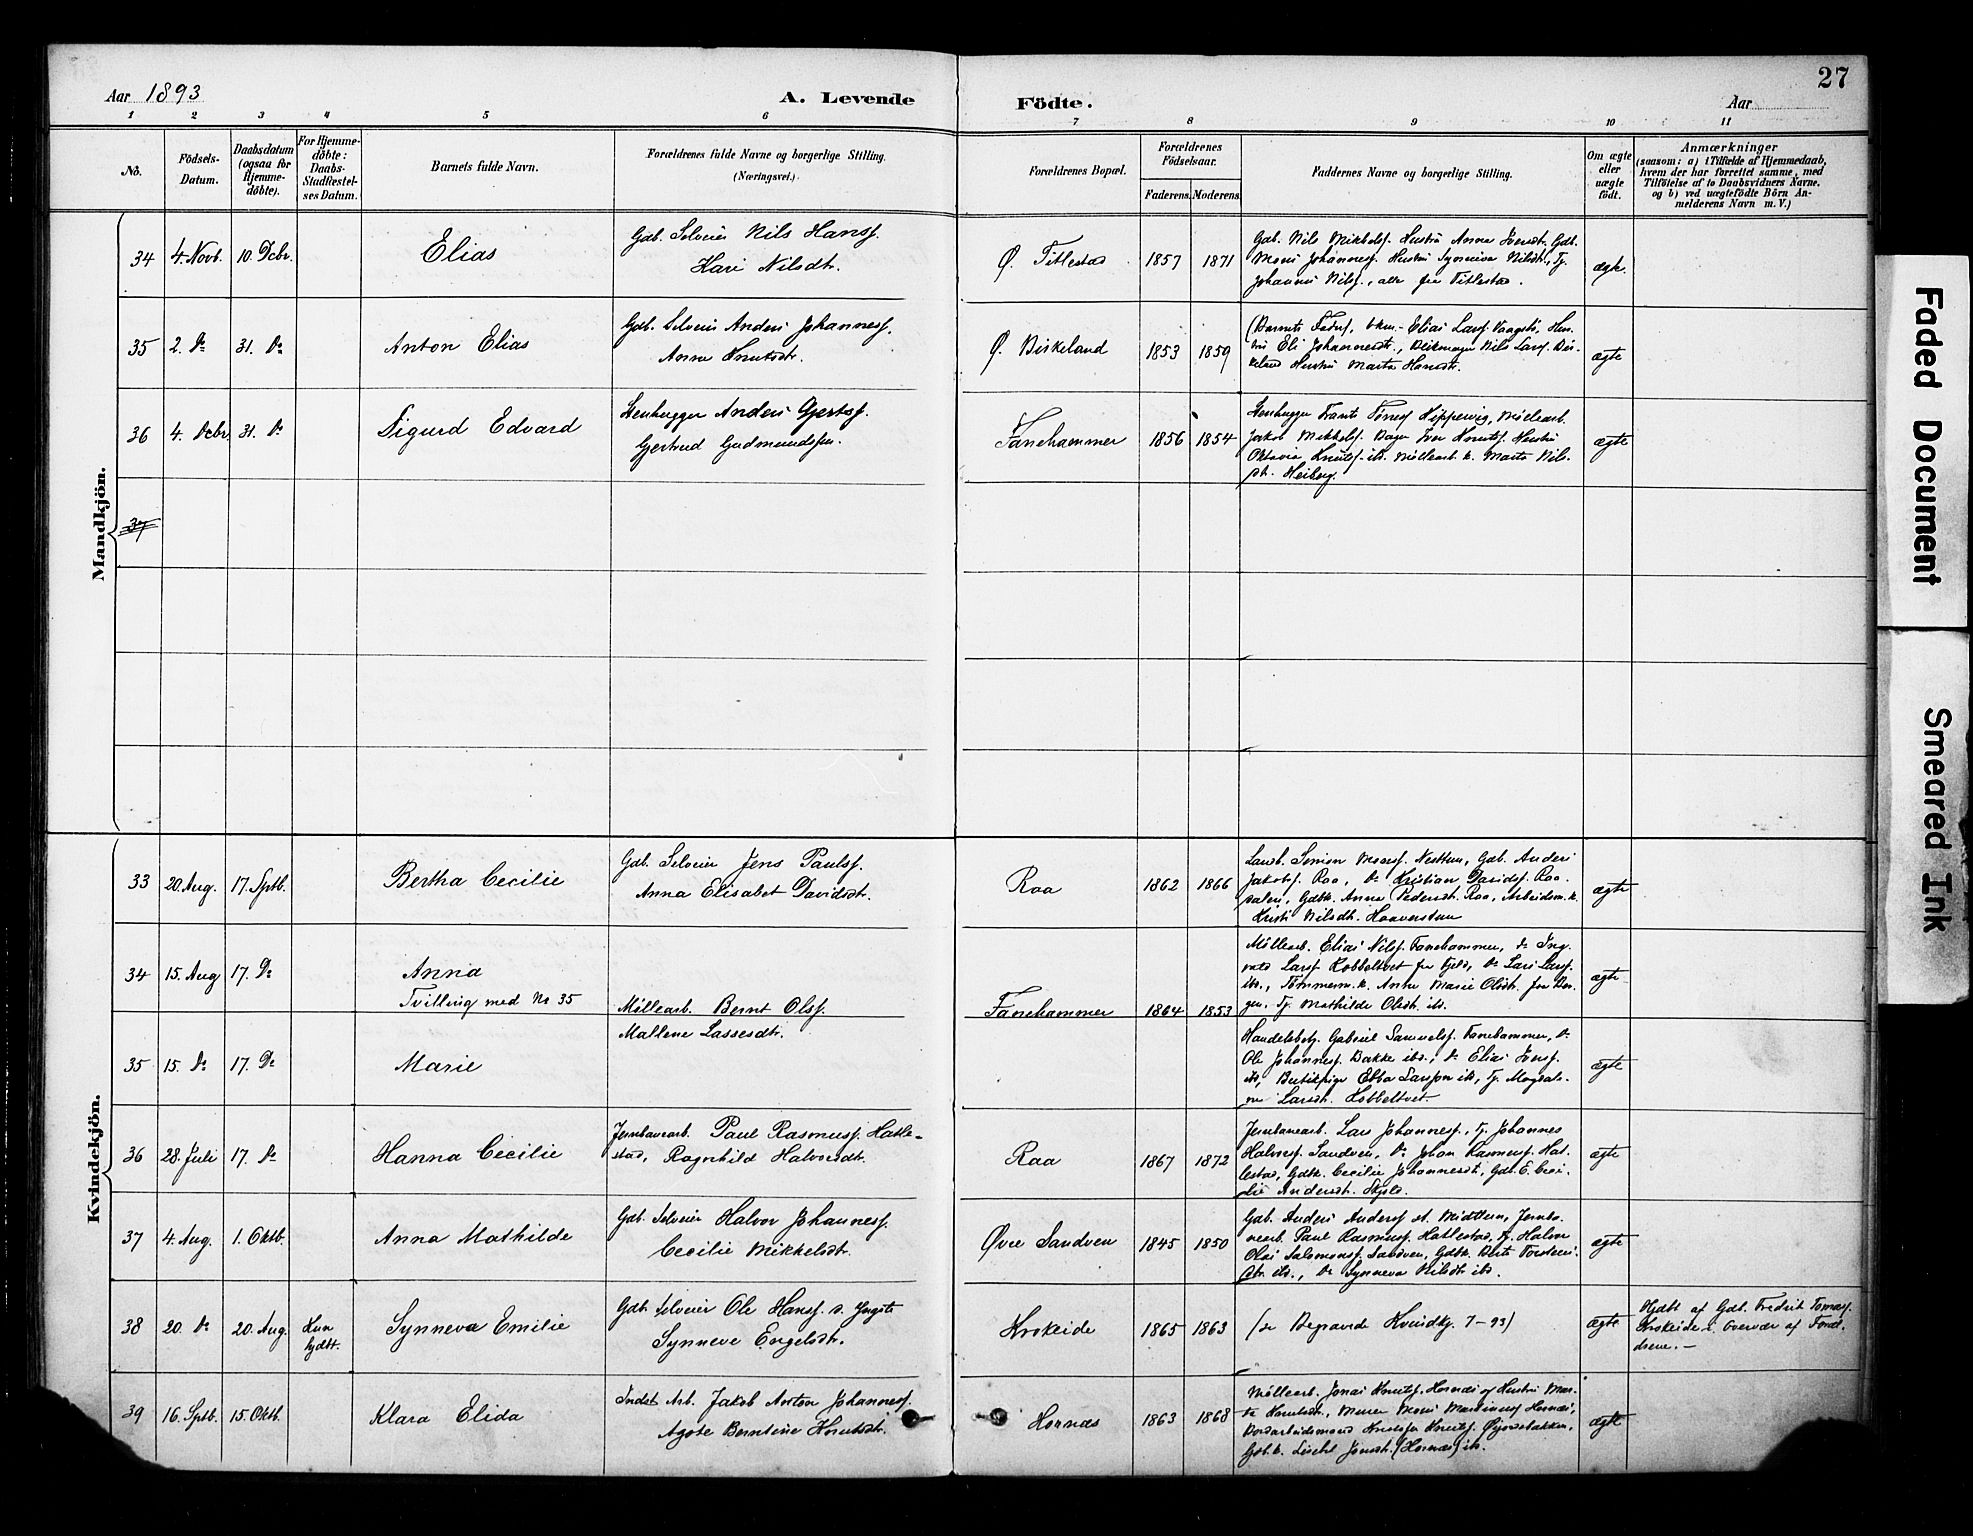 27
Aar 1893
A. Levende
Födte.
Aar
1 2 3 4 5 6 7 8 9 10 11
No.
Födsels-
Datum.
Daabsdatum
(ogsaa for
Hjemme-
döbte).
For Hjemme-
döbte:
Daabs-
Stadfæstel-
ses Datum.
Barnets fulde Navn.
Forældrenes fulde Navne og borgerlige Stilling.
(Næringsvei.)
Forældrenes Bopæl.
Forældrenes
Födselsaar.
Faderens. Moderens.
Faddernes Navne og borgerlige Stilling.
Om ægte
eller
uægte
födt.
Anmærkninger
(saasom: a) i Tilfælde af Hjemmedaab,
hvem der har forrettet samme, med
Tilföielse af to Daabsvidners Navne.
og b) ved uægtefödte Börn An-
melderens Navn m. V.)
Mandkjön.
34 4. Novb. 10. Dcbr. Elias
Gdb. Selveier Nils Hansf.
Kari Nilsdtr.
Ø. Titlestad 1857 1871
Gdb. Nils Mikkelsf. Hustru Anna Iversdt. Gdb.
Mons Johannesf. Hustru Synneva Nilsdt., Tj.
Johannes Nilsf., alle fra Titlestad.
ægte.
35 2. Do 31. Do Anton Elias
Gdb. Selveier Anders Johannesf.
Anna Knutsdtr.
Ø. Birkeland 1853 1859
(Barnets Fader, Elias Larsf. Vaagsbö, Hus-
tru Eli Johannesdt., Nils Larsf. Bir-
keland Hustru Marta Hansdt.
ægte
36 4. Dcbr. 31. Do Sigurd Edvard
Stenhugger Anders Gjertsf.
Gjertrud Gudmundsen.
Fanehammer 1856 1854
Stenhugger Frants Tönnesf. Möllearb.
Jakob Mikkelsf. Iver Knutsf. Hustru
Oktavia Knutsf. ib. Möllearb. k. Marta Nils-
dt. Heiberg.
ægte
37
Kvindekjön.
33 20. Aug. 17. Sptb. Bertha Cecilie
Gdb. Selveier Jens Paulsf.
Anna Elisabet Davidsdt.
Raa 1862 1866
Simon Monsf. Nesttun, Gdb. Anders
Jakobsf. Raa, Do Kristian Davidsf. Raa-
dalen, Gdbk. Anna Pedersdt. Raa, Arbeidsm. k.
Kirsti Nilsdt.
ægte
34 15. Aug 17. Do Anna
Tvilling med No 35
Möllearb. Bernt Olsf.
Mallene Lassesdt.
Fanehammer 1864 1853
Möllearb. Elias Nilsf. Fanehammer, do Ing-
vald Larsf. Kobbeltvet fra Fjeld, Do Lars Larsf.
ibd., Tömmerm. k. Anna Marie Olsdt. fra Ber-
gen. Tj. Mathilde Olsdt. ib.
ægte
35 15. Do 17. Do Marie
Handelsbetj. Gabriel Samuelsf. Fanehammer, Do
Ole Johannesf. Bakke ibd., Do Elias Jensf.
ib, Butikpige Ebba Larsson ib, Tj. Magdale-
ne Larsdt. Kobbeltvet.
ægte
36 28. Juli 17. Do Hanna Cecilie
Jernbanearb. Paul Rasmusf. Hatle-
stad, Ragnhild Halvorsdt.
Raa 1867 1872
Jernbanearb. Lars Johannesf., Tj. Johannes
Halvorsf. Sandven, Do Johan Rasmusf. Hat-
lestad, Gdbk. Cecilie Johannesdt., Gdb. E. Ceci-
lie Andersdt. Skjold.
ægte
37 4. Aug. 1. Oktb. Anna Mathilde
Gdb. Selveier Halvor Johannesf.
Cecilie Mikkelsdt.
Övre Sandven 1845 1850
Gdb. Anders Andersf. st. Midttun, Jernba-
nearb. Paul Rasmusf. Hatlestad, Tj. Halvor
Olai Salomonsf. Sandven, Gdbk. Berta Torstens-
dtr. ibd., Do Synneva Nilsdt. ibd.
ægte
38 20. Do 20. Aug. Kun
hjdbt. Synneva Emilie
Gdb. Selveier Ole Hansf. d. Yngste
Synneve Engelsdt.
Krokeide 1865 1863
(se Begravede Kvindkj. 7-93)
ægte
Hjdbt af Gdb. Fredrik Tomasf.
Krokeide i Overvær af Foræl-
drene. —
39 16. Sptb. 15. Oktb. Klara Elida
Indst. Arb. Jakob Anton Johannesf.
Agate Berntine Knutsdt.
Hornæs 1863 1868
Möllearb. Jonas Knutsf. Hornæs og Hustru Mar-
ta Knutsdt., Murer Mons Martinusf. Hornæs,
Jordarbeidsmand Kristofer Knutsf.
Gdb. k. Jonsdt. (Hornæs) ib.
ægte
Faded Document
Smeared Ink